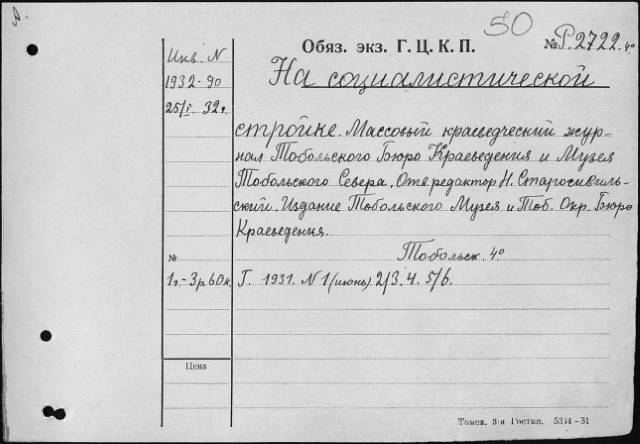 50
Обяз. экз. Г. Ц. К. П.
№ Р.2722. 4°
Инв. N
1932-90
25/I. 32г.
На социалистической
стройке. Массовый краеведческий жур-
нал Тобольского Бюро Краеведения и Музея
Тобольского Севера. Отв редактор Н. Старосивиль-
ский. Издание Тобольского Музея и Тоб. Окр. Бюро
Краеведения.
Тобольск. 4°
№
1г.-3р.60к.
Г. 1931. N 1 (июнь) 2/3. 4. 5/6.
Цена
Томск. 3-я Гостип. 5314-31